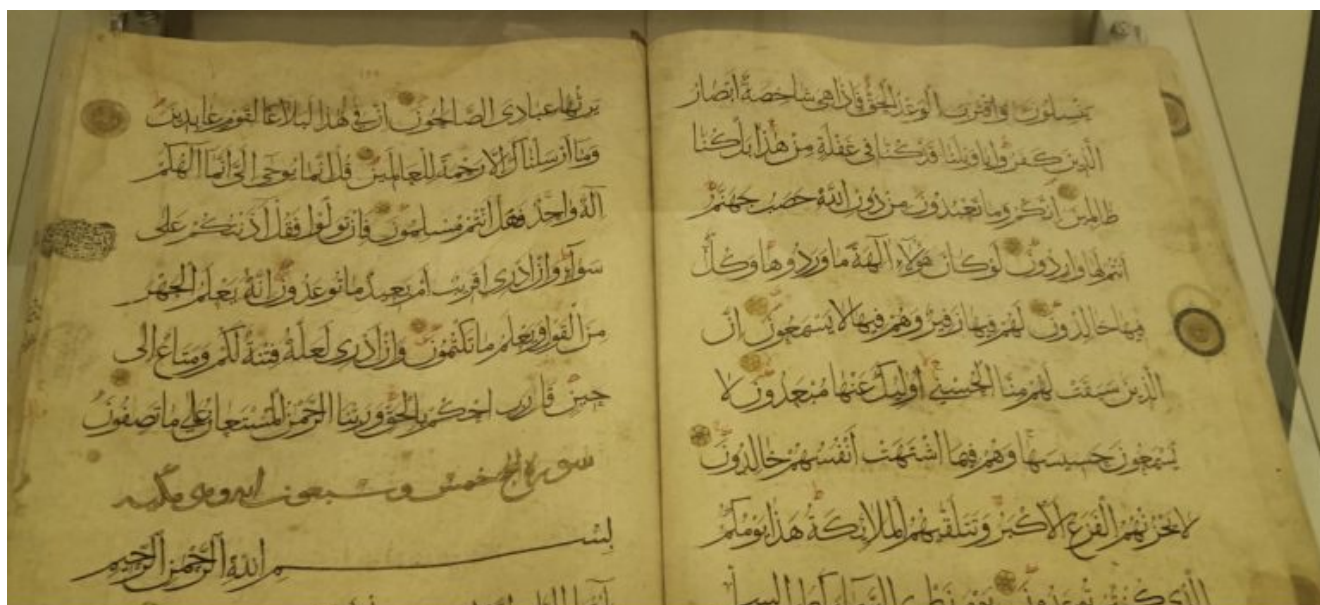 يَنْسِلُونَ وَاقْتَرَبَ الْوَعْدُ الْحَقُّ فَاِذَا هِيَ شَاخِصَةٌ اَبْصَارُ
الَّذِينَ كَفَرُوا يَا وَيْلَنَا قَدْ كُنَّا فِي غَفْلَةٍ مِنْ هٰذَا بَلْ كُنَّا
ظَالِمِينَ اِنَّكُمْ وَمَا تَعْبُدُونَ مِنْ دُونِ اللّٰهِ حَصَبُ جَهَنَّمَ
اَنْتُمْ لَهَا وَارِدُونَ لَوْ كَانَ هٰؤُلَاءِ اٰلِهَةً مَا وَرَدُوهَا وَكُلٌّ
فِيهَا خَالِدُونَ لَهُمْ فِيهَا زَفِيرٌ وَهُمْ فِيهَا لَا يَسْمَعُونَ اِنَّ
الَّذِينَ سَبَقَتْ لَهُمْ مِنَّا الْحُسْنٰى اُولٰئِكَ عَنْهَا مُبْعَدُونَ لَا
يَسْمَعُونَ حَسِيسَهَا وَهُمْ فِيمَا اشْتَهَتْ اَنْفُسُهُمْ خَالِدُونَ
لَا يَحْزُنُهُمُ الْفَزَعُ الْاَكْبَرُ وَتَتَلَقّٰيهُمُ الْمَلَائِكَةُ هٰذَا يَوْمُكُمُ
الَّذِي كُنْتُمْ تُوعَدُونَ يَوْمَ نَطْوِي السَّمَاءَ كَطَيِّ السِّجِلِّ
يَرِثُهَا عِبَادِيَ الصَّالِحُونَ اِنَّ فِي هٰذَا لَبَلَاغًا لِقَوْمٍ عَابِدِينَ
وَمَا اَرْسَلْنَاكَ اِلَّا رَحْمَةً لِلْعَالَمِينَ قُلْ اِنَّمَا يُوحٰى اِلَيَّ اَنَّمَا اِلٰهُكُمْ
اِلٰهٌ وَاحِدٌ فَهَلْ اَنْتُمْ مُسْلِمُونَ فَاِنْ تَوَلَّوْا فَقُلْ اٰذَنْتُكُمْ عَلٰى
سَوَاءٍ وَاِنْ اَدْرِي اَقَرِيبٌ اَمْ بَعِيدٌ مَا تُوعَدُونَ اِنَّهُ يَعْلَمُ الْجَهْرَ
مِنَ الْقَوْلِ وَيَعْلَمُ مَا تَكْتُمُونَ وَاِنْ اَدْرِي لَعَلَّهُ فِتْنَةٌ لَكُمْ وَمَتَاعٌ اِلٰى
حِينٍ قَالَ رَبِّ احْكُمْ بِالْحَقِّ وَرَبُّنَا الرَّحْمٰنُ الْمُسْتَعَانُ عَلٰى مَا تَصِفُونَ
سورة الحج خمس وسبعون اية وهي مكية
بِسْمِ اللّٰهِ الرَّحْمٰنِ الرَّحِيمِ